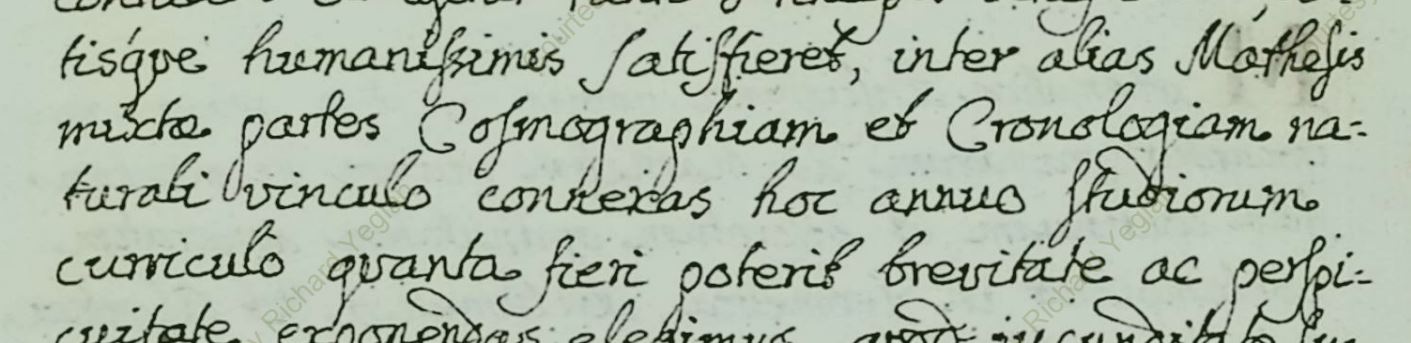 tisq́ue humaniſsimis ſatiſfieret, inter alias Matheſis
mixtæ partes Coſmographiam et Cronologiam na-
turali vinculo connexas hoc annuo ſtudiorum
curriculo quanta fieri poterit brevitate ac perſpi-
cuitate exponendas elegimus, quod iucunditate